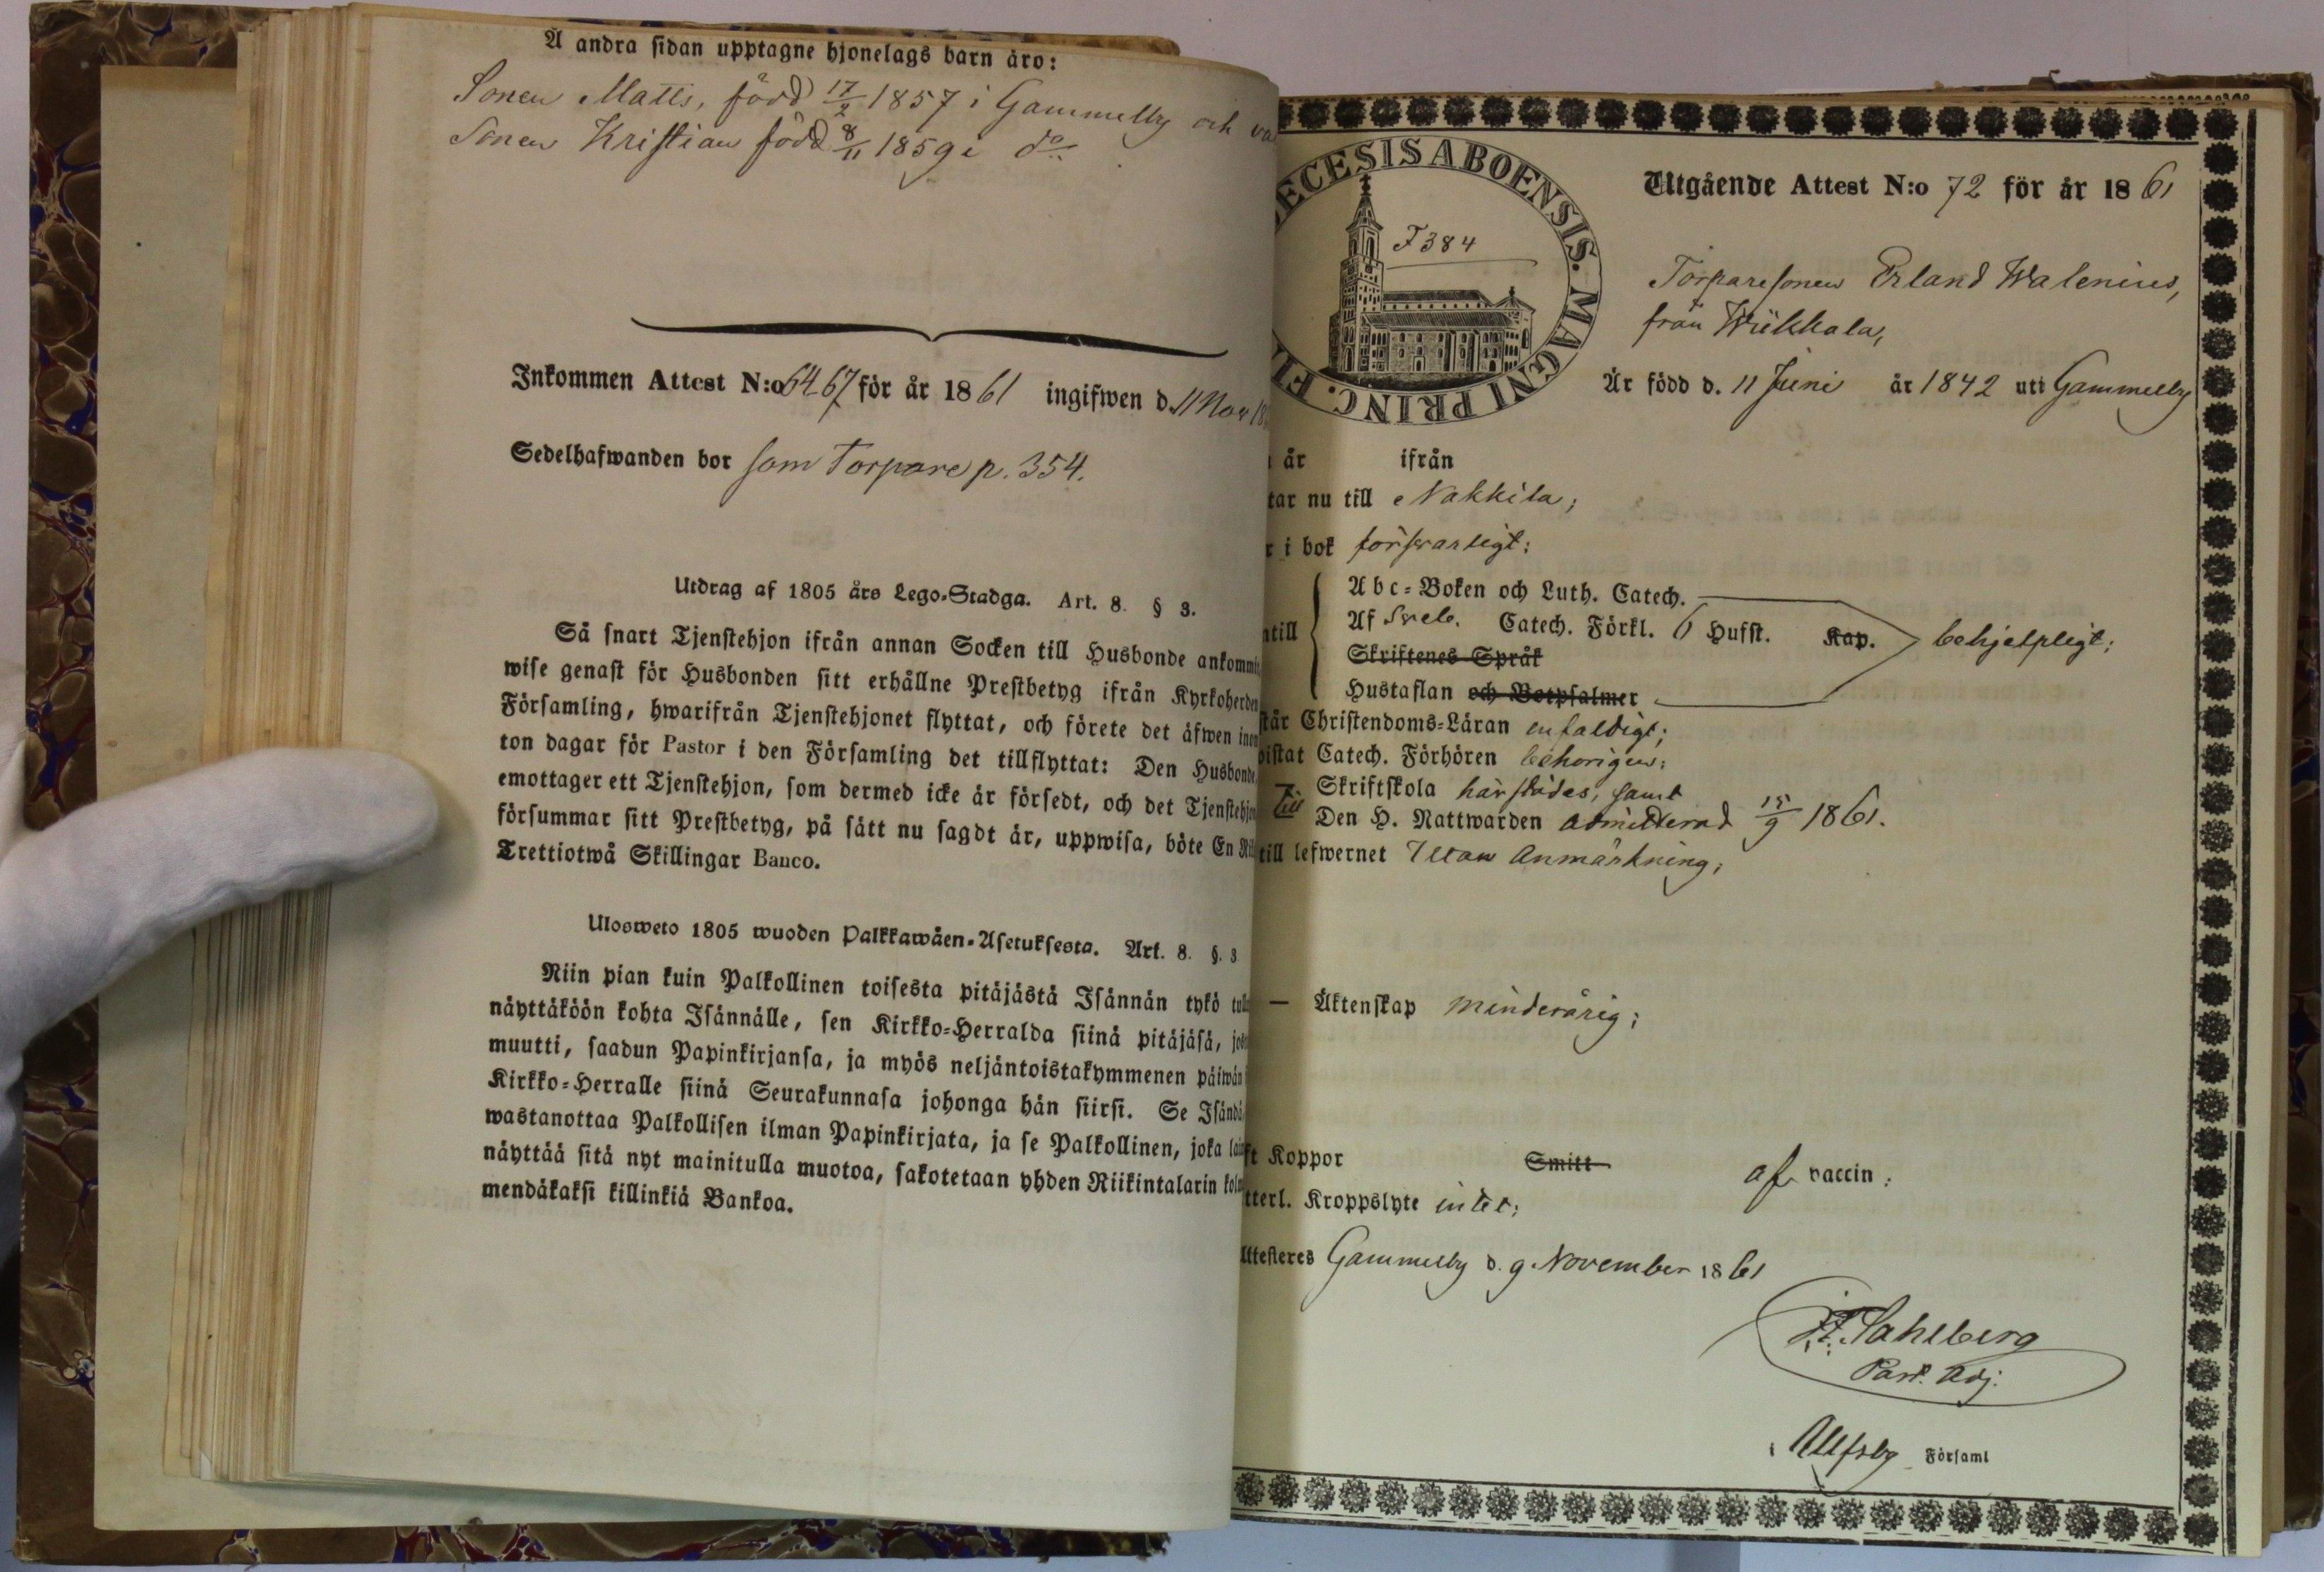 Å andra sidan upptagne hjonelags barn äro:
Sonen Matts, född 17/2 1857 i Gammelby och
Sonen Kristian född 8/11 1859 i do
Inkommen Attest N:o 64-67 för år 1861 ingifwen d. 11 Nov 18
Sedelhafwanden bor som Torpare p. 354.
Utdrag af 1805 års Lego-Stadga. Art. 8. § 3.
Så snart Tjenstehjon ifrån annan Socken till Husbonde ankommit,
wise genast för Husbonden sitt erhållne Prestbetyg ifrån Kyrkoherden
Församling, hwarifrån Tjenstehjonet flyttat, och förete det äfwen inen
ton dagar för Pastor i den Församling det tillflyttat: Den Husbonde
emottager ett Tjenstehjon, som dermed icke är försedt, och det Tjenstehjon
försummar sitt Prestbetyg, på sätt nu sagdt är, uppwisa, böte En
Trettiotwå Skillingar Banco.
Ulosweto 1805 wuoden Palkkawäen-Asetuksesta. Art. 8. §. 3
Niin pian kuin Palkollinen toisesta pitäjästä Isännän tykö
näyttäköön kohta Isännälle, sen Kirkko-Herralda siinä pitäjäsä,
muutti, saadun Papinkirjansa, ja myös neljäntoistakymmenen päiwän
Kirkko-Herralle siinä Seurakunnasa johonga hän siirsi. Se Isändä
wastanottaa Palkollisen ilman Papinkirjata, ja se Palkollinen, joka
näyttää sitä nyt mainitulla muotoa, sakotetaan yhden Riikintalarin
mendäkaksi killinkiä Bankoa.
ECESIS ABOENSIS. MAGNI PRINC. FI
F 384
Utgående Attest N:o 72 för år 1861
Torparesonen Erland Walenius,
från Wiikkala,
Är född d. 11 Juni år 1842 uti Gammelby
år ifrån
tar nu till Nakkila;
r i bok försvarligt;
Abc-Boken och Luth. Catech.
ntill Af Sveb. Catech. Förkl. 6 Hufst. Kap. behjelpligt;
Skriftenes Språk
Hustaflan och Botpsalmer
står Christendoms-Läran enfaldigt;
wistat Catech. Förhören behörigen;
Till Skriftskola härstädes, samt
Den H. Nattwarden admitterad 15/9 1861.
till lefwernet Utan Anmärkning;
— Äktenskap minderårig;
ft Koppor Smitt af vaccin;
tterl. Kroppslyte intet;
Attesteres Gammelby d. 9 November 1861
Sahlberg
Past. Adj.
i Ulfsby Församl